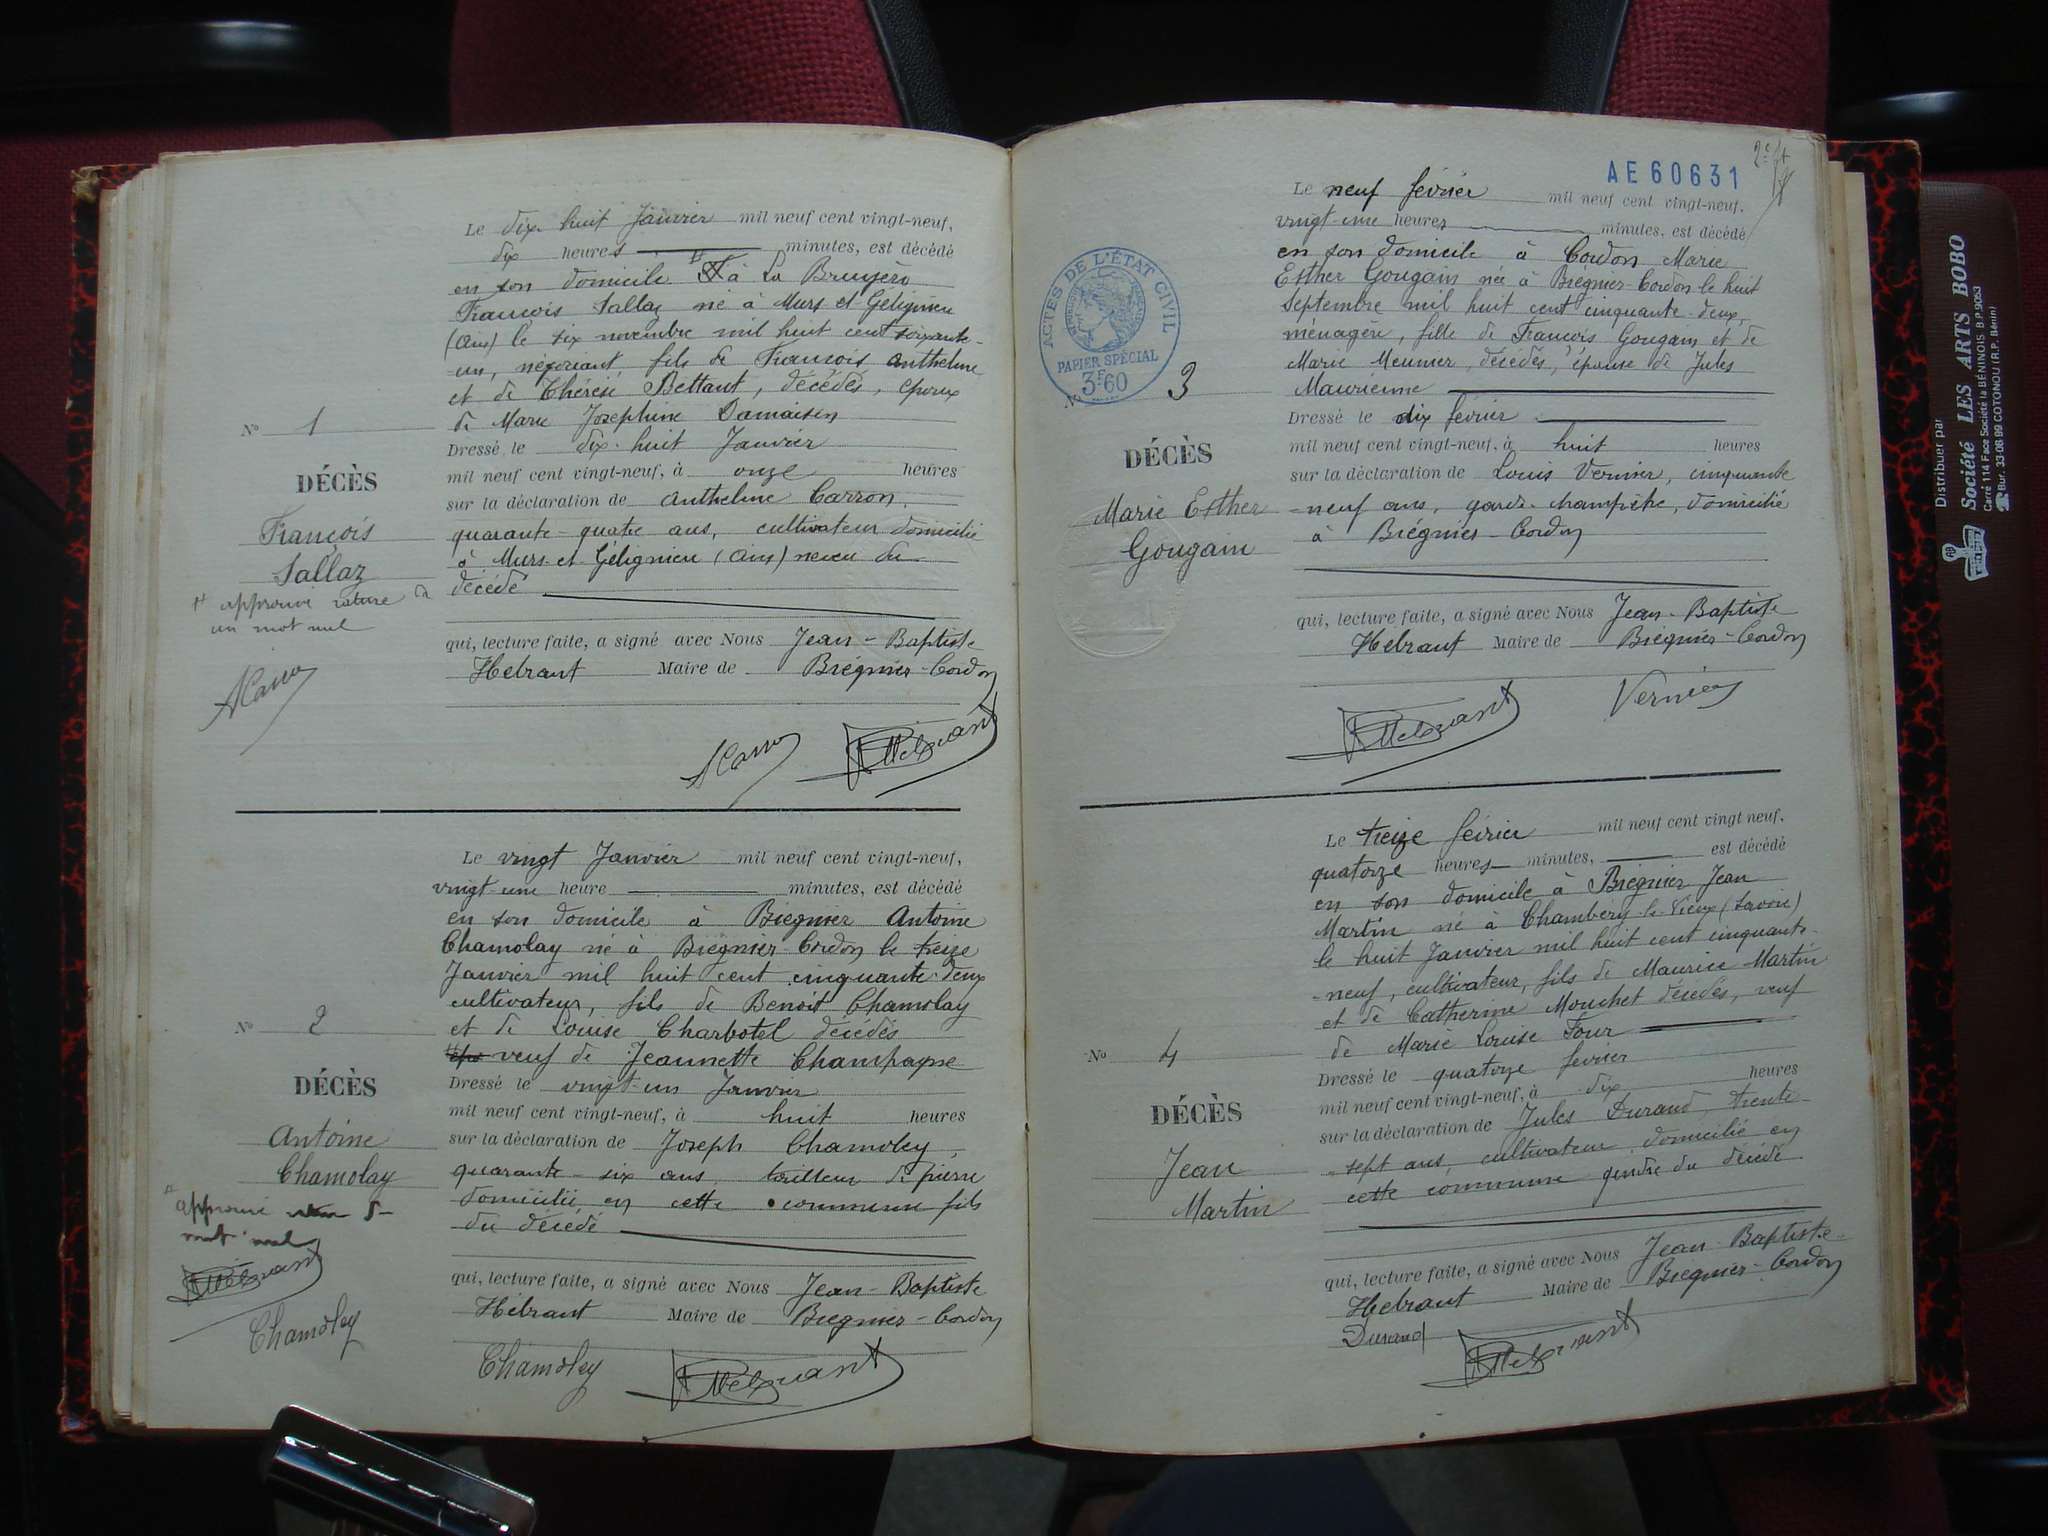 Le dix-huit Janvier mil neuf cent vingt-neuf,
dix heures minutes, est décédé
en son domicile à La Bruyère
François Sallaz né à Murs-et-Gélignieu
(Ain) le six novembre mil huit cent soixante-
un, négociant, fils de François Anthelme
et de Thérèse Bettant, décédés, époux
de Marie Josephine Damaisin
Nº 1
Dressé le dix-huit Janvier
mil neuf cent vingt-neuf, à onze heures
DÉCÈS
sur la déclaration de Anthelme Carron,
François
quarante-quatre ans, cultivateur domicilié
Sallaz
à Murs-et-Gélignieu (Ain) neveu du
décédé
approuvé rature
un mot nul
qui, lecture faite, a signé avec Nous Jean-Baptiste
Hébrant Maire de Brégnier-Cordon
Le vingt Janvier mil neuf cent vingt-neuf,
vingt-une heure minutes, est décédé
en son domicile à Brégnier Antoine
Chamolay né à Brégnier-Cordon le treize
Janvier mil huit cent cinquante-deux
cultivateur, fils de Benoit Chamolay
et de Louise Charbotel décédés
Nº 2
veuf de Jeannette Champagne
DÉCÈS
Dressé le vingt-un Janvier
mil neuf cent vingt-neuf, à huit heures
Antoine
sur la déclaration de Joseph Chamoley,
Chamolay
quarante-six ans, tailleur de pierre
domicilié en cette commune fils
du décédé
approuvé
mot nul
qui, lecture faite, a signé avec Nous Jean-Baptiste
Hébrant Maire de Brégnier-Cordon
Chamoley
Chamoley Hébrant
AE 60631
Le neuf février mil neuf cent vingt-neuf,
vingt-une heures minutes, est décédé
en son domicile à Cordon Marie
Esther Gougain née à Brégnier-Cordon le huit
Septembre mil huit cent cinquante-deux,
ménagère, fille de François Gougain et de
Marie Meunier, décédés, épouse de Jules
Maurienne
ACTES DE L'ÉTAT CIVIL
RÉPUBLIQUE FRANÇAISE
PAPIER SPÉCIAL
3F60
Nº 3
Dressé le dix février
mil neuf cent vingt-neuf, à huit heures
DÉCÈS
sur la déclaration de Louis Vernier, cinquante
Marie Esther
-neuf ans, garde-champêtre, domicilié
Gougain
à Brégnier-Cordon
qui, lecture faite, a signé avec Nous Jean-Baptiste
Hébrant Maire de Brégnier-Cordon
Hébrant Vernier
Le treize février mil neuf cent vingt neuf,
quatorze heures minutes, est décédé
en son domicile à Brégnier Jean
Martin né à Chambéry-le-Vieux (Savoie)
le huit Janvier mil huit cent cinquante-
-neuf, cultivateur, fils de Maurice Martin
et de Catherine Mouchet décédés, veuf
de Marie Louise Four
Nº 4
Dressé le quatorze février
mil neuf cent vingt-neuf, à dix heures
DÉCÈS
sur la déclaration de Jules Durand, trente-
Jean
-sept ans, cultivateur domicilié en
Martin
cette commune gendre du décédé
qui, lecture faite, a signé avec Nous Jean-Baptiste
Hébrant Maire de Brégnier-Cordon
Durand Hébrant
Distribuer par
Société LES ARTS BOBO
Carré 114 Face Société la BÉNINOIS B.P.9053
Bur. 33-06 99 COTONOU (R.P. Bénin)